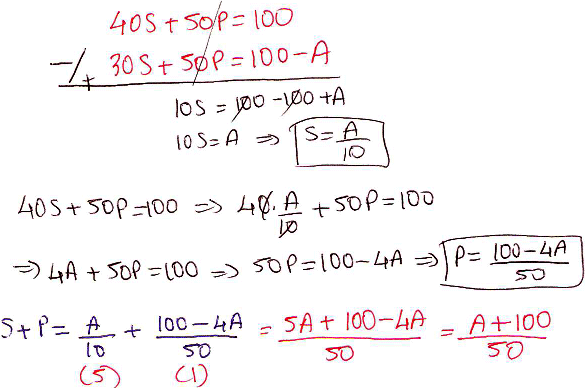 40S + 50P = 100
-/+ 30S + 50P = 100 - A
10S = 100 - 100 + A
10S = A ⇒ S = A/10
40S + 50P = 100 ⇒ 40 . A/10 + 50P = 100
⇒ 4A + 50P = 100 ⇒ 50P = 100 - 4A ⇒ P = (100 - 4A)/50
S + P = A/10 + (100 - 4A)/50 = (5A + 100 - 4A)/50 = (A + 100)/50
(5) (1)